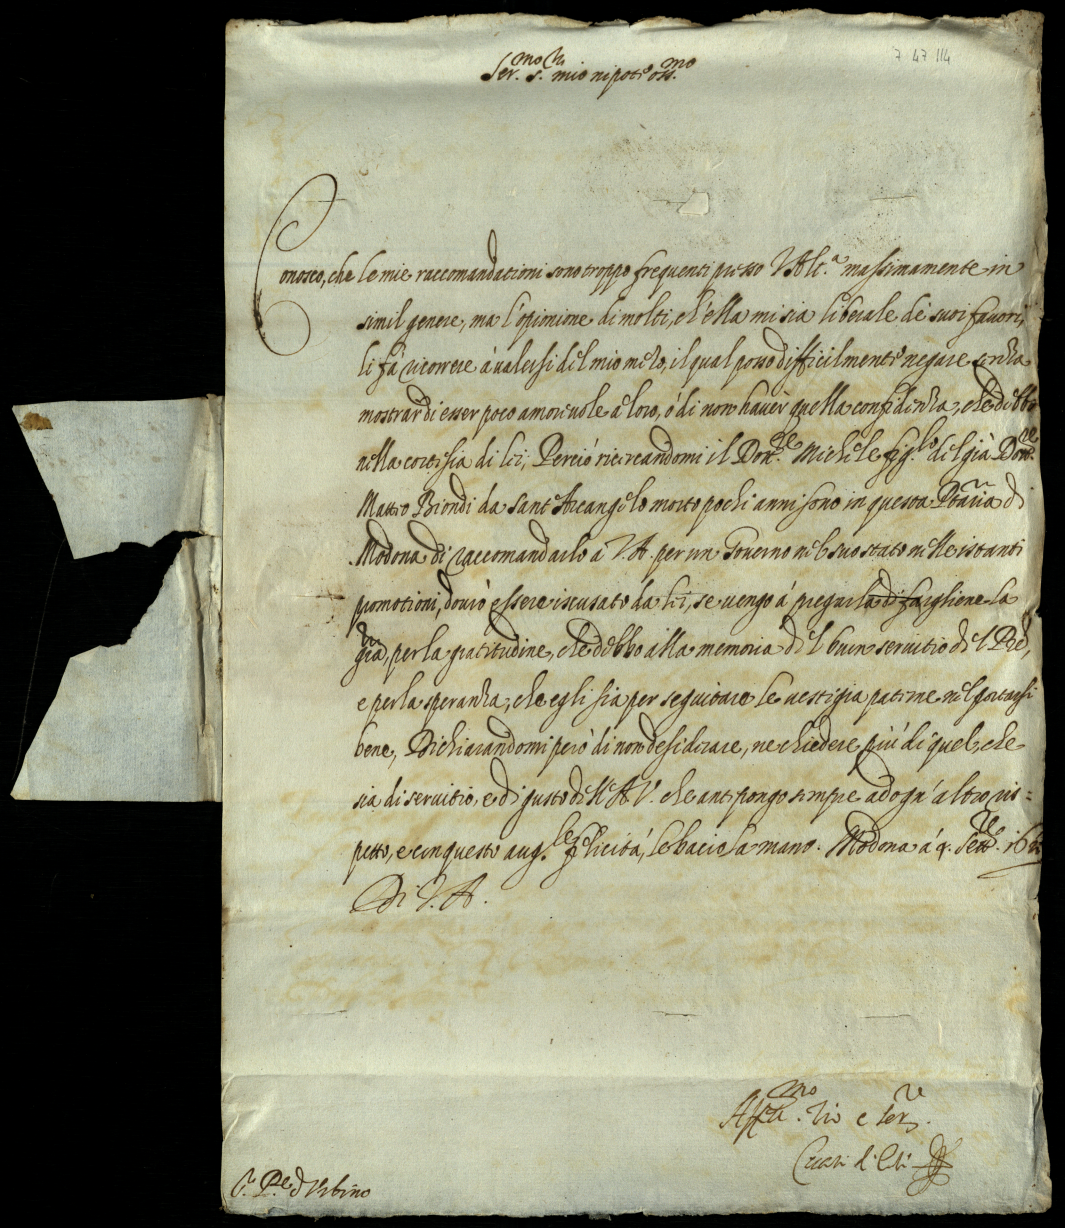 7 47 114
Ser.mo S.r mio nipote oss.mo
Conosco, che le mie raccomandationi sono troppo frequenti presso V Alt.a massimamente in
simil genere, ma l'opinione di molti, ch'ella mi sia liberale de suoi favori,
li fà ricorrere à valersi del mio mezo, il qual posso difficilmente negare senza
mostrar di esser poco amorevole a loro, ó di non haver quella confidenza, che debbo
nella cortesia di lei, Perció ricercandomi il Dott.re Michele fig.lo del già Dott.re
Matteo Biondi da Sant'Arcangelo morto pochi anni sono in questa di
Modona di raccomandarlo a V A. per un Governo nel suo stato nelle istanti
promotioni, dovrò essere iscusato da lei, se vengo á pregarla di fargliene la
gratia, per la gratitudine, che debbo alla memoria del buon servitio del Pad.e,
e per la speranza, che egli sia per seguitare le vestigia paterne nel portarsi
bene, Dichiarandomi peró di non desiderare, ne chiedere piú di quel, che
sia di servitio, e di gusto di V A V. che antepongo sempre ad ogn'altro ris=
petto, e con questo aug.le felicitá, le bacio la mano. Modona á 4. Sett.e
Di V. A.
Aff.mo Zio e Ser.re
Cesare d'Este
S.r P.e d'Urbino